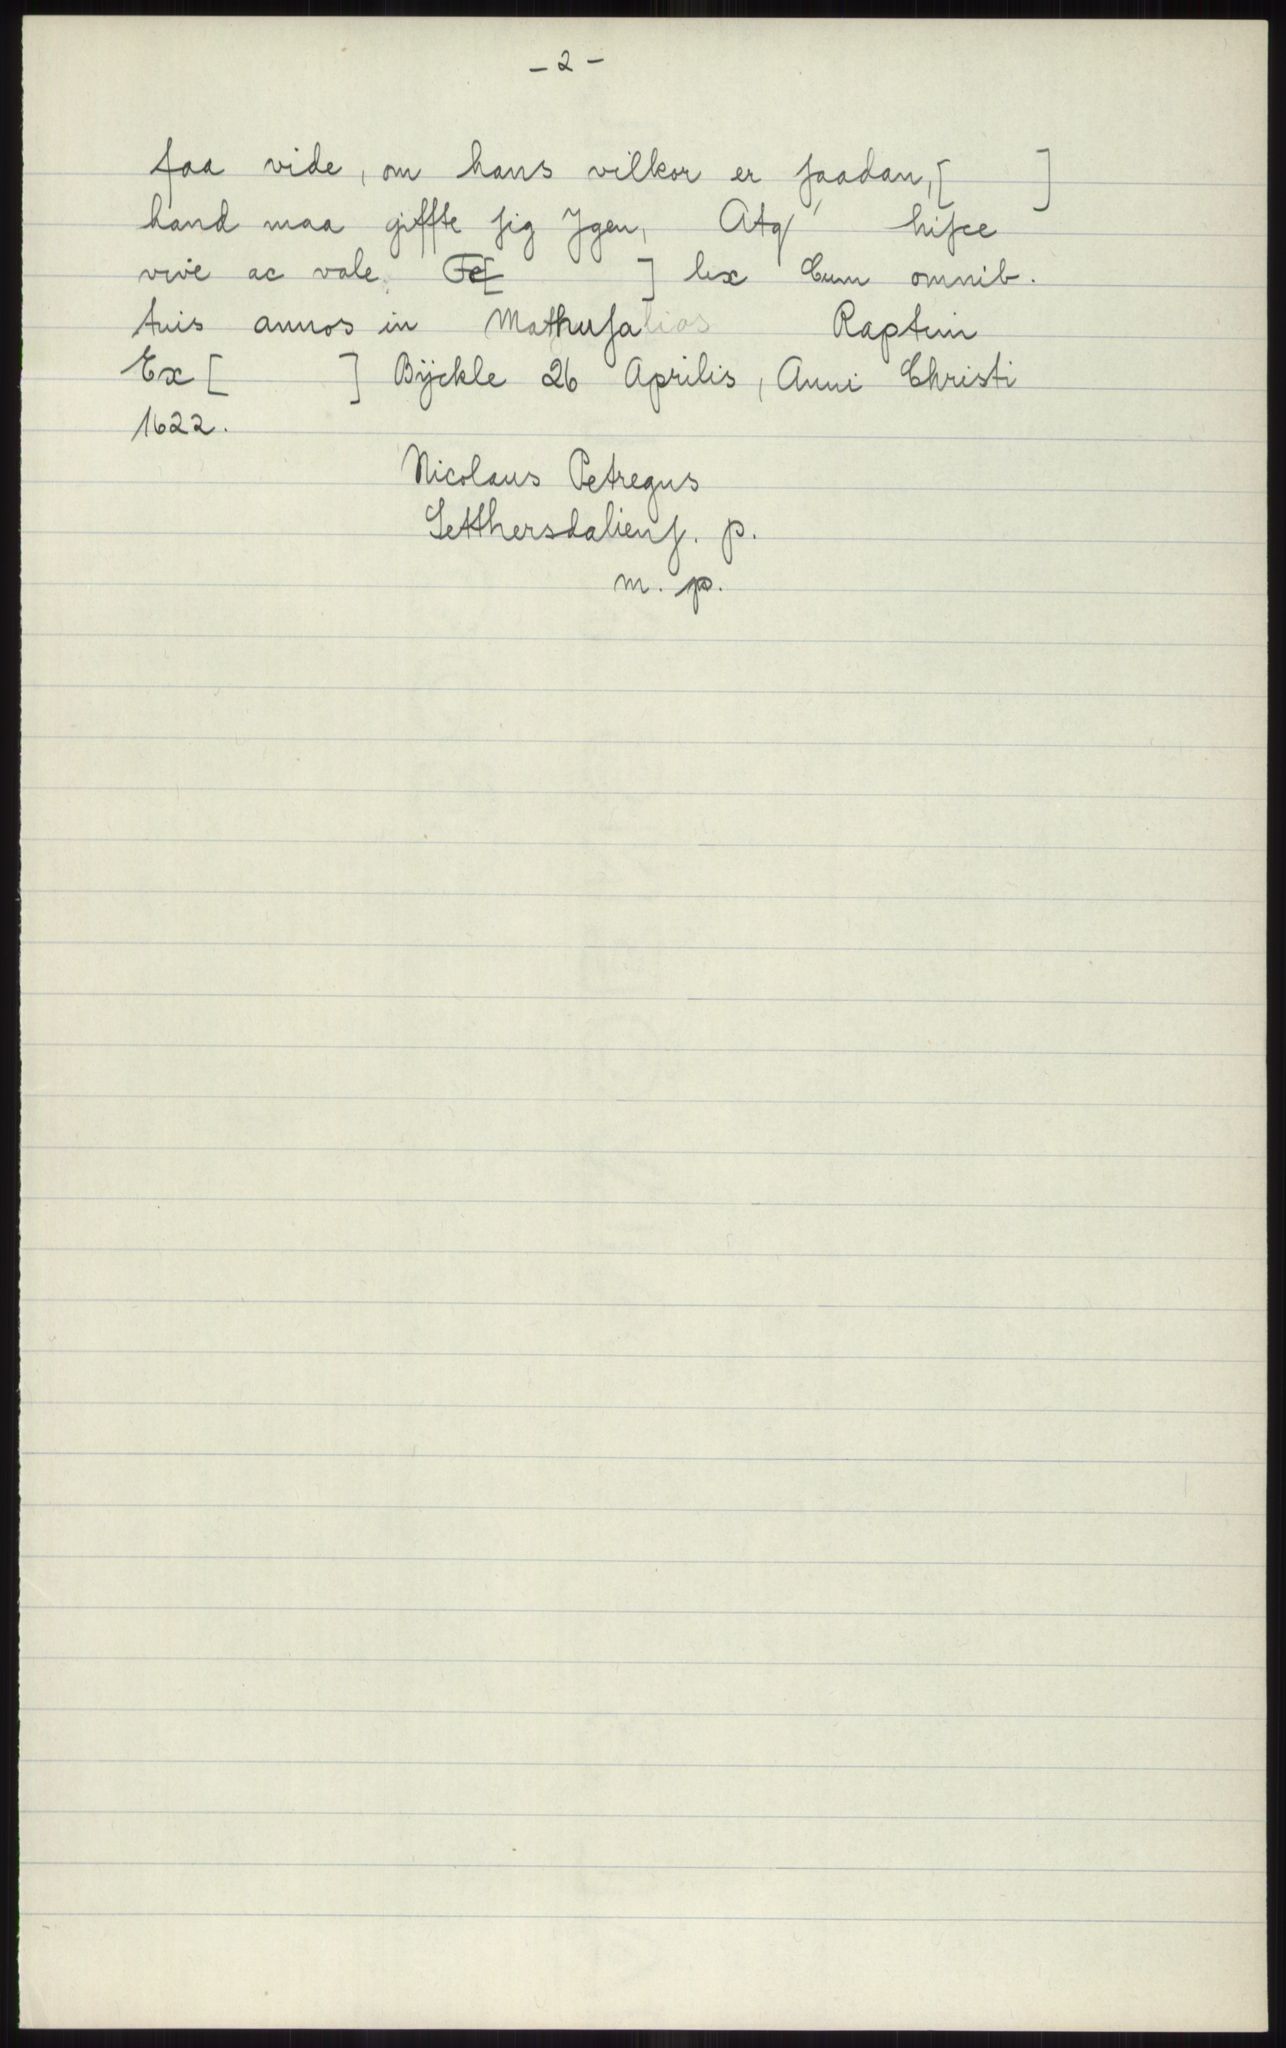 - 2 -
faa vide, om hans vilkor er ſaadan, [ ]
hand maa giffte ſig Jgen, Atq' hiſce
vive ac vale. Fe[ ] lix Cum omnib.
tuis annos in Mathuſalios Raptim
Ex [ ] Bÿckle 26 Aprilis, Anni Christi
1622.
Nicolaus Petregus
Setthersdalienſ. p.
m. p.